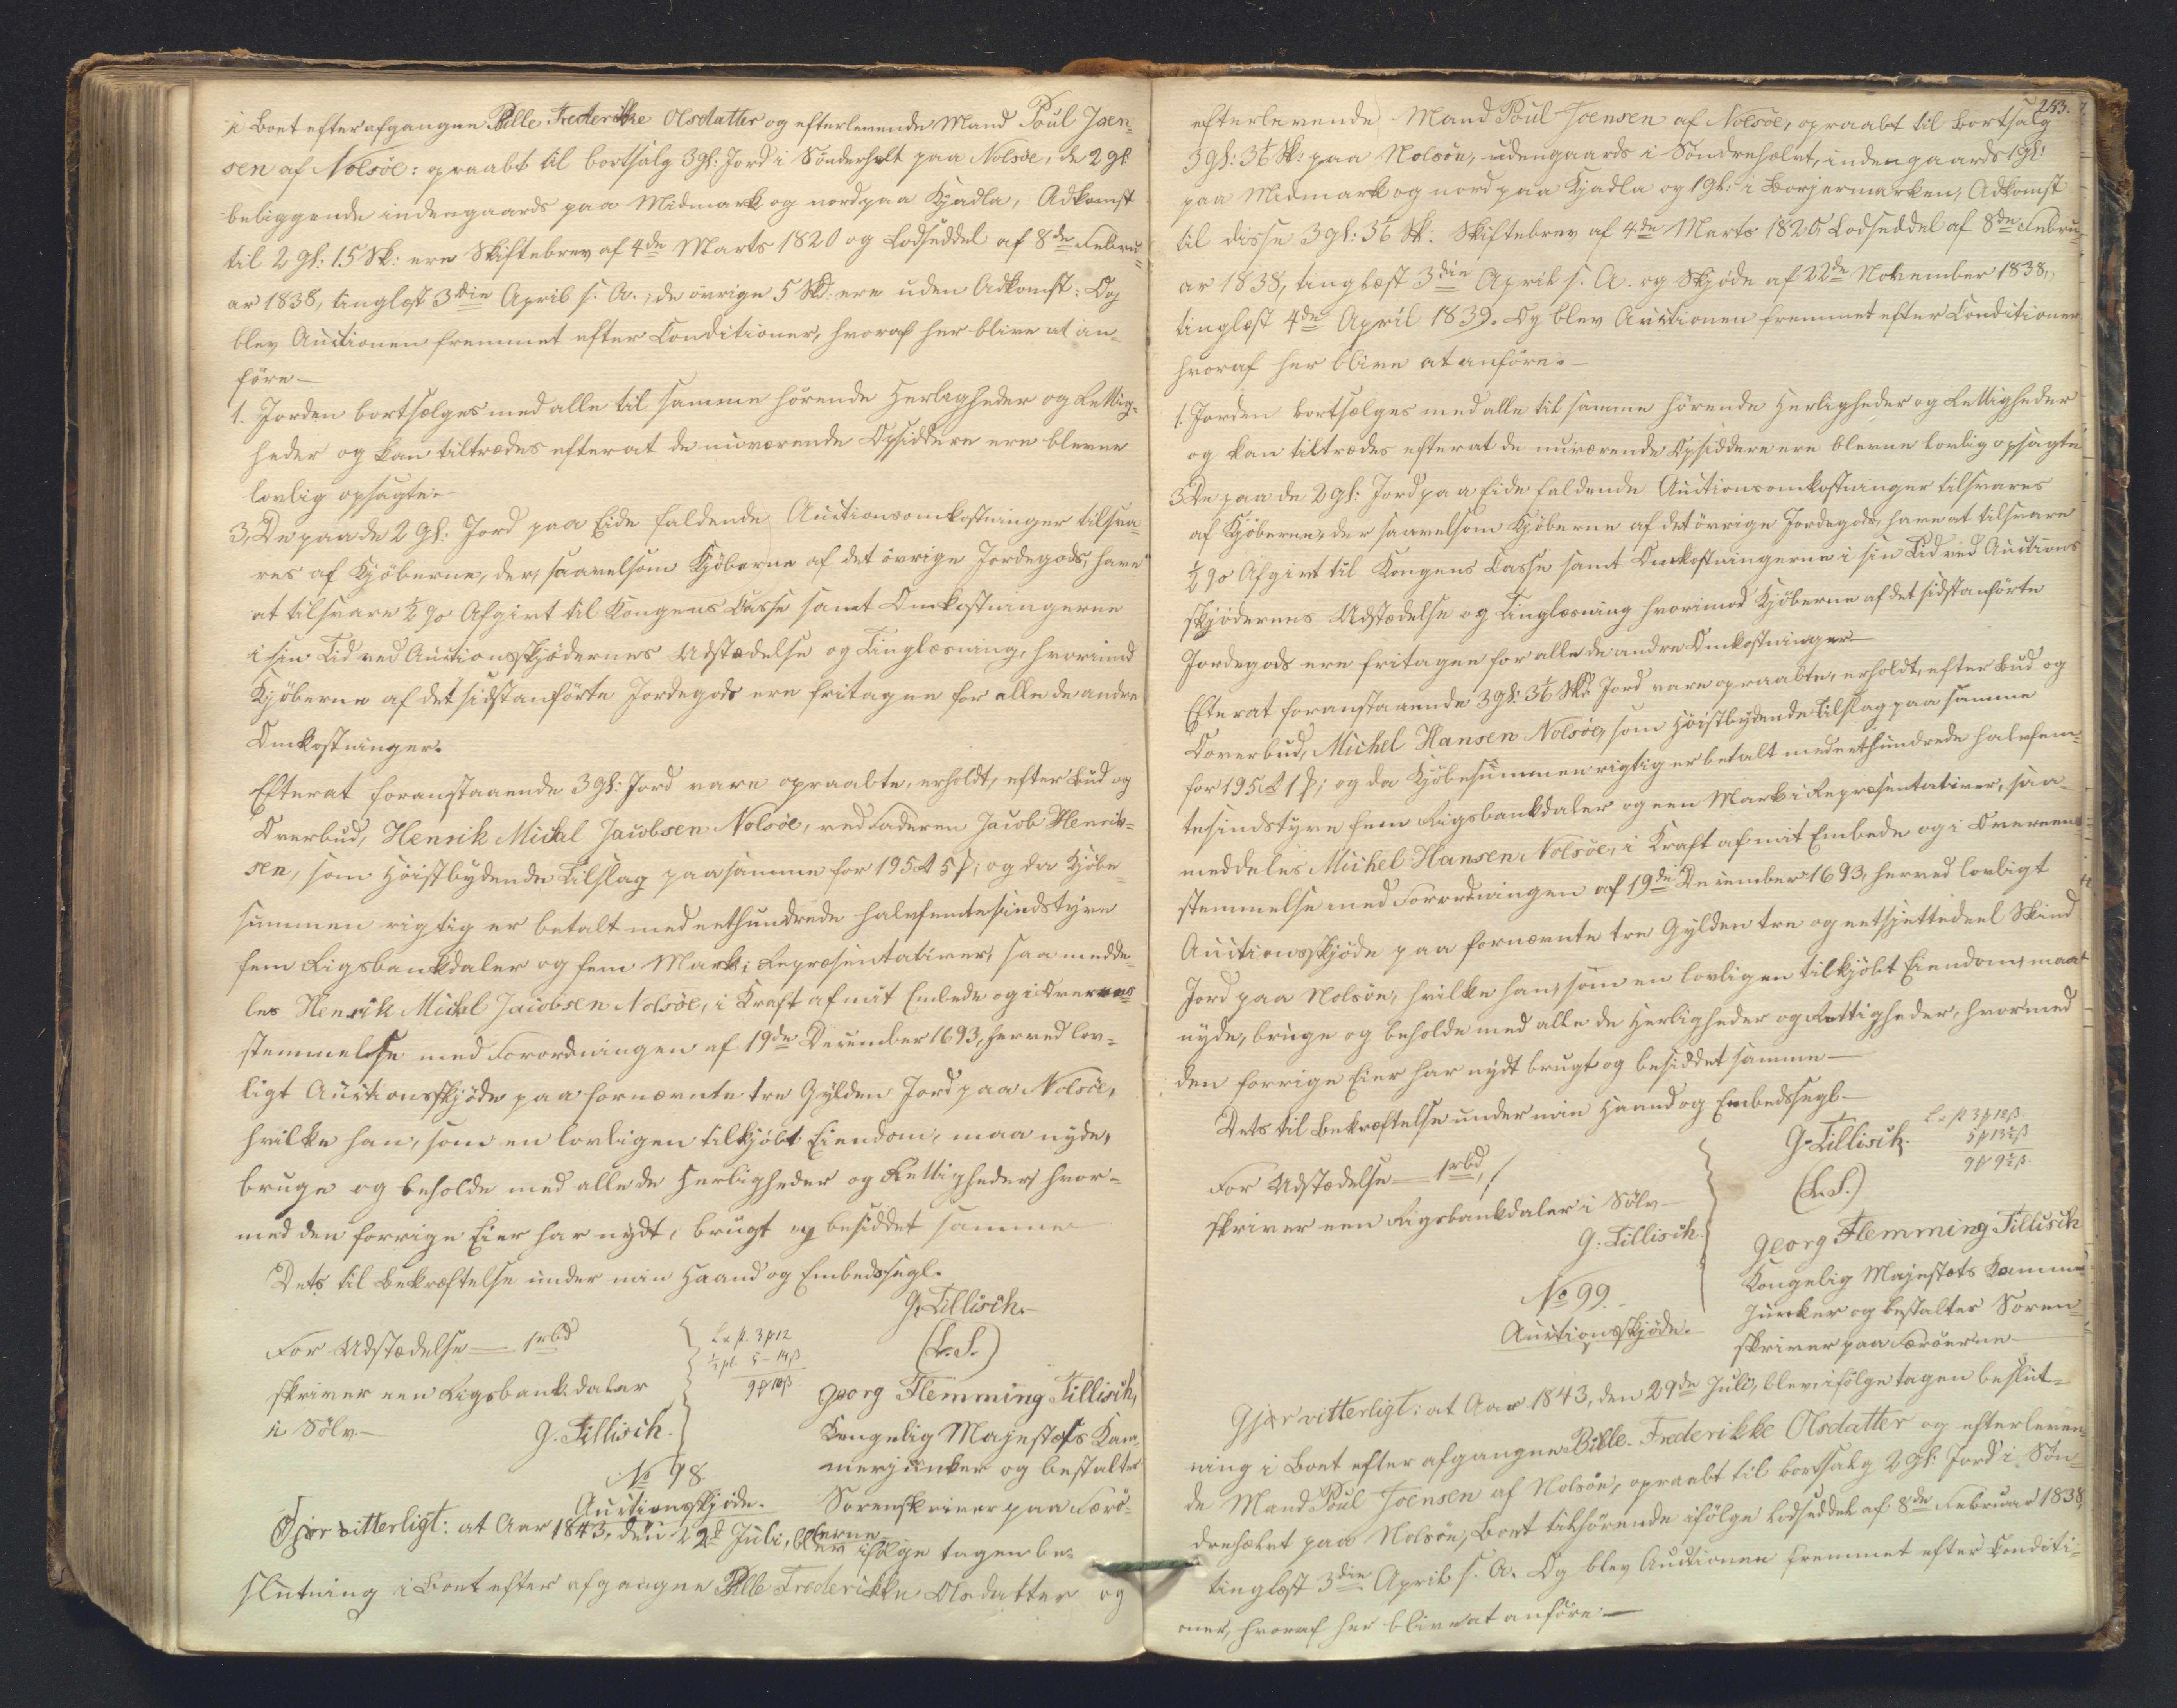 i Boet efter afgangne Bille Frederikke Olsdatter og efterlevende Mand Poul Joen-
sen af Nolsöe: opraabt til bortsalg 3 Gl: Jord i Sönderholt paa Nolsöe, de 2 gl
beliggende indengaards paa Midmark og nord paa Kjadla, Adkomst
til 2 Gl: 15 Sk: ere Skiftebrev af 4de Marts 1820 og Lodseddel af 8de Febru-
ar 1838, tinglæst 3die April s. A.; de övrige 5 Skd: ere uden Adkomst: Og
blev Auctionen fremmet efter Conditioner, hvoraf her blive at an-
före.—
1. Jorden bortsælges med alle til samme hörende Herligheder og Rettig-
heder og kan tiltrædes efterat de nuværende Opsiddere ere blevne
lovlig opsagte.—
3, De paa de 2 Gl: Jord paa Eide faldende Auctionsomkostninger tilsva-
res af Kjöberne, der, saavelsom Kjöberne af det övrige Jordegods, have
at tilsvare ½ % Afgivt til Kongens Casse samt Omkostningerne
i sin Tid ved Auctionsskjödernes Udstædelse og Tinglæsning, hvorimod
Kjöberne af det sidstanförte Jordegods ere fritagne for alle de andre
Omkostninger.
Efterat foranstaaende 3 Gl: Jord vare opraabte, erholdt, efter Bud og
Overbud, Henrik Michal Jacobsen Nolsöe, ved Faderen Jacob Henrik-
sen, som Höistbydende Tilslag paa samme for 195 5 ; og da Kjöbe-
summen rigtig er betalt med eethundrede halvfemtesindstyve
fem Rigsbankdaler og fem Mark i Repræsentativer, saa medde-
les Henrik Michal Jacobsen Nolsöe, i Kraft af mit Embede og i Overeens-
stemmelse med Forordningen af 19de December 1693, herved lov-
ligt Auctionsskjöde paa fornævnte tre Gylden Jord paa Nolsöe,
hvilke han, som en lovligen tilkjöbt Eiendom, maa nyde,
bruge og beholde med alle de Herligheder og Rettigheder, hvor-
med den forrige Eier har nydt, brugt og besiddet samme
Dets til Bekræftelse under min Haand og Embedssegl.
G. Tillisch.—
For Udstædelse — 1rbd
skriver een Rigsbankdaler
i Sölv—
G. Tillisch.
3 12
5 – 14ß
9 10ß
(L.S.)
Georg Flemming Tillisch,
Kongelig Majestæts Kam-
merjunker og bestalter
Sorenskriver paa Færö-
erne
No 98
Auctionsskjöde.
Gjör vitterligt: at Aar 1843, den 22d Juli, blev ifölge tagen be-
slutning i Boet efter afgangne Bille Frederikke Olsdatter og
253.
efterlevende Mand Poul Joensen af Nolsöe, opraabt til bortsalg
3 Gl: 3⅙ Sk: paa Nolsöe, udengaards i Söndrehælvt, indengaards 1 Gl:
paa Midmark og nord paa Kjadla og 1 Gl: i Borjermarken, Adkomst
til disse 3 Gl: 3⅙ Sk: Skiftebrev af 4de Marts 1820 Lodseddel af 8de Febru-
ar 1838, tinglæst 3die April s. A. og Skjöde af 22de November 1838,
tinglæst 4de April 1839. Og blev Auctionen fremmet efter Conditioner
hvoraf her blive at anföre:—
1. Jorden bortsælges med alle til samme hörende Herligheder og Rettigheder
og kan tiltrædes efterat de nuværende Opsiddere ere blevne lovlig opsagte
3 De paa de 2 Gl: Jord paa Eide faldende Auctionsomkostninger tilsvares
af Kjöberne, der saavelsom Kjöberne af det övrige Jordegods, have at tilsvare
½ % Afgivt til Kongens Casse samt Omkostningerne i sin Tid ved Auctions-
skjödernes Udstædelse og Tinglæsning hvorimod Kjöberne af det sidstanförte
Jordegods ere fritagne for alle de andre Omkostninger—
Efterat foranstaaende 3 Gl: 3⅙ Skd Jord vare opraabte, erholdt, efter Bud og
Overbud, Michel Hansen Nolsöe, som Höistbydende Tilslag paa samme
for 195 1 ; og da Kjöbesummen rigtig er betalt med eethundrede halvfem-
tesindstyve fem Rigsbankdaler og een Mark i Repræsentativer, saa
meddeles Michel Hansen Nolsöe, i Kraft af mit Embede og i Overeens-
stemmelse med Forordningen af 19de December 1693, herved lovligt
Auctionsskjöde paa fornævnte tre Gylden tre og eetsjettedeel Skind
Jord paa Nolsöe, hvilke han, som en lovligen tilkjöbt Eiendom, maa
nyde, bruge og beholde med alle de Herligheder og Rettigheder, hvormed
den forrige Eier har nydt brugt og besiddet samme—
Dets til Bekræftelse under min Haand og Embedssegl—
G. Tillisch.
3 12ß
5 13½ß
9 9½ß
For Udstædelse — 1rbd,
skriver een Rigsbankdaler i Sölv—
G. Tillisch.
(L.S.)
Georg Flemming Tillisch
Kongelig Majestæts Kammer-
Juncker og bestalter Soren-
skriver paa Færöerne—
No 99.
Auctionsskjöde.
Gjör vitterligt: at Aar 1843, den 29de Juli, blev, ifölge tagen beslut-
ning i Boet efter afgangne Bille Frederikke Olsdatter og efterleven-
de Mand Poul Joensen af Nolsöe, opraabt til bortsalg 2 Gl: Jord i Sön-
drehælvt paa Nolsöe, Boet tilhörende ifölge Lodseddel af 8de Februar 1838,
tinglæst 3die April s. A. Og blev Auctionen fremmet efter Conditi-
oner, hvoraf her blive at anföre:—